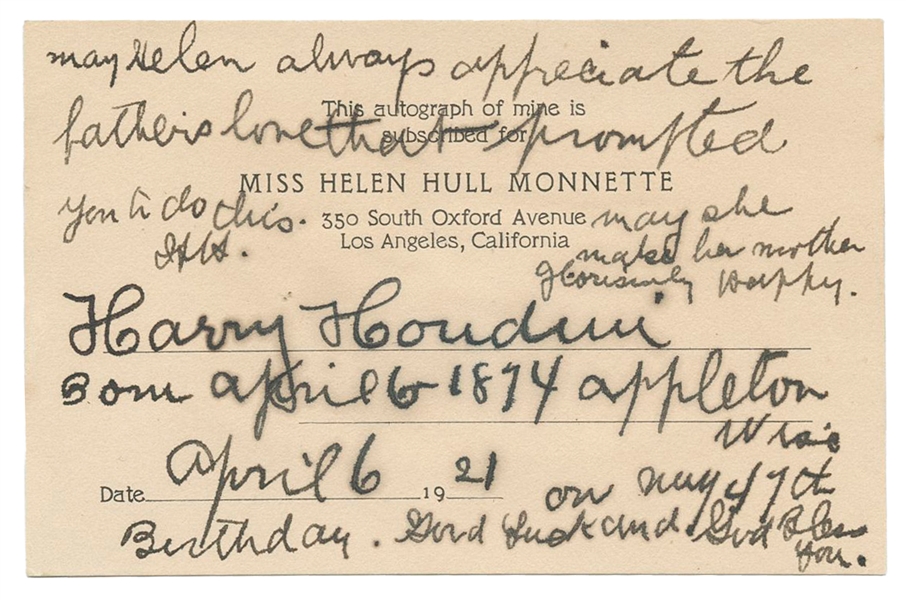 may Helen always appreciate the
This autograph of mine is
father's love that prompted
subscribed for
MISS HELEN HULL MONNETTE
you to do this.
350 South Oxford Avenue
may she
Los Angeles, California
H.H.
make her mother
Happy.
Harry Houdini
Born april 6 1874 appleton
Wisc
April 6
Date 1921
on my 47th
Birthday. Good Luck and God Bless
you.